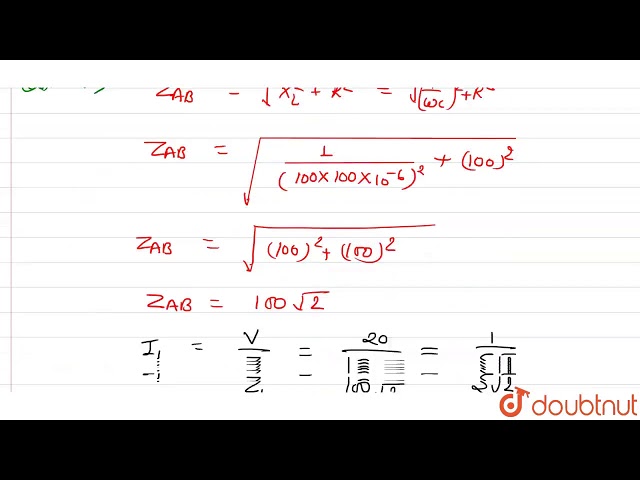 Z_AB = √(X_c² + R²) = √((1/ωc)² + R²)
Z_AB = √(1/(100×100×10⁻⁶)² + (100)²)
Z_AB = √((100)² + (100)²)
Z_AB = 100√2
I₁ = V/Z₁ = 20/100√2 = 1/5√2
doubtnut